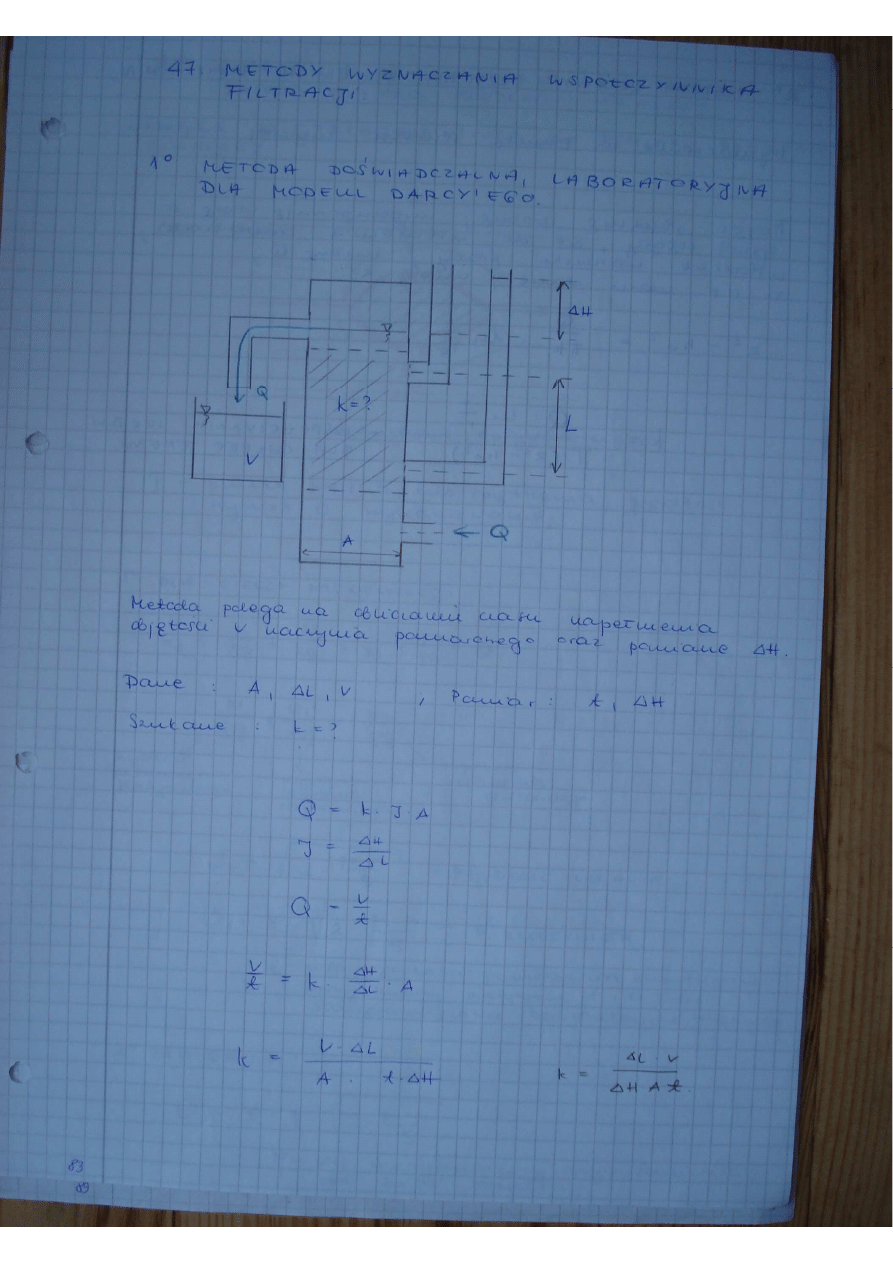 47. METODY WYZNACZANIA WSPÓŁCZYNNIKA
FILTRACJI.
1° METODA DOŚWIADCZALNA, LABORATORYJNA
DLA MODELU DARCY'EGO.
ΔH
Q
k=?
L
V
Q
A
Metoda polega na napełnienia
objętości V naczynia pomiarowego oraz pomiarze ΔH.
Dane : A, ΔL, V , Pomiar : t, ΔH
Szukane : k = ?
Q = k · J · A
J = ΔH / ΔL
Q = V / t
V / t = k · ΔH / ΔL · A
k = V · ΔL / A · t · ΔH
k = ΔL · V / ΔH A t
83
89